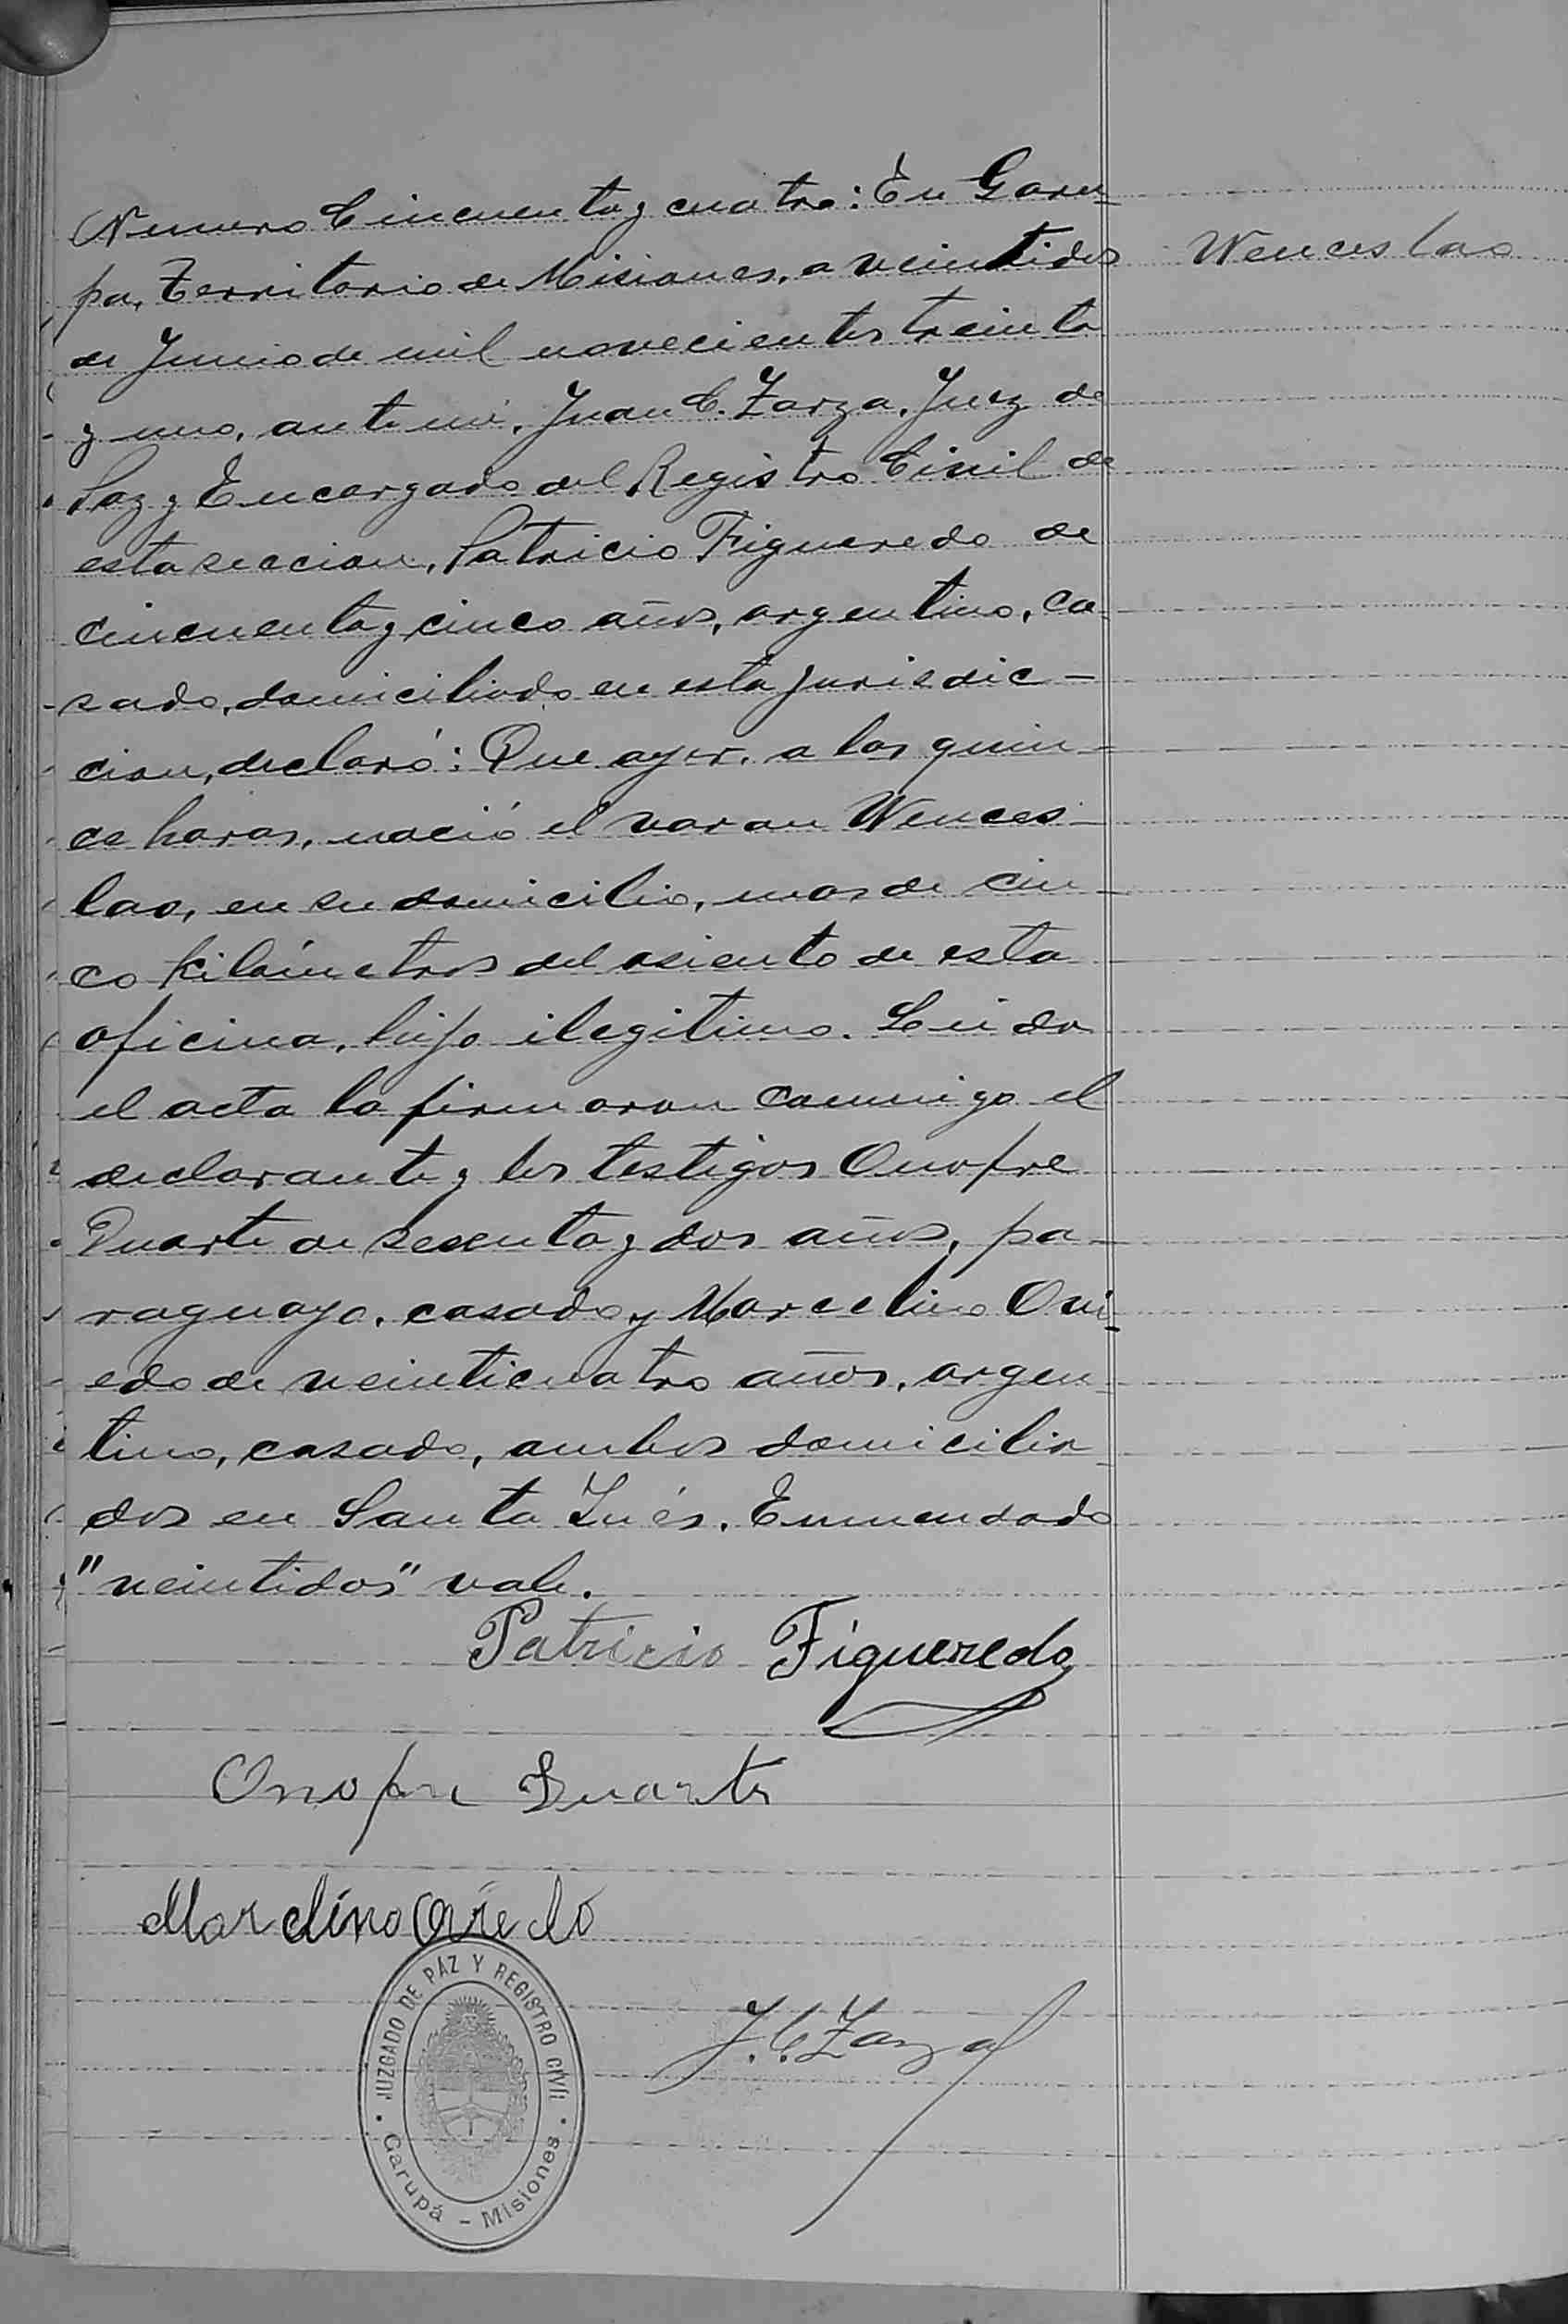 Numero Cincuenta y cuatro: En Garu-
pa, Territorio de Misiones, a veintidos
de Junio de mil novecientos treinta
y uno, ante mi, Juan C. Zarza, Juez de
Paz y Encargado del Registro Civil de
esta seccion, Patricio Figueredo de
cincuenta y cinco años, argentino, ca-
sado, domiciliado en esta jurisdic-
cion, declaró: Que ayer, a las quin-
ce horas, nació el varon Wences-
lao, en su domicilio, mas de cin-
co kilómetros del asiento de esta
oficina, hijo ilegitimo. Leida
el acta la firmaron conmigo el
declarante y los testigos Onofre
Duarte de sesenta y dos años, pa-
raguayo, casado y Marcelino Ovi-
edo de veinticuatro años, argen-
tino, casado, ambos domicilia-
dos en Santa Inés. Enmendado
"veintidos" vale.
Wenceslao
Patricio Figueredo
Onofre Duarte
Marcelino Oviedo
J. C. Zarza
JUZGADO DE PAZ Y REGISTRO CIVIL
Garupá - Misiones